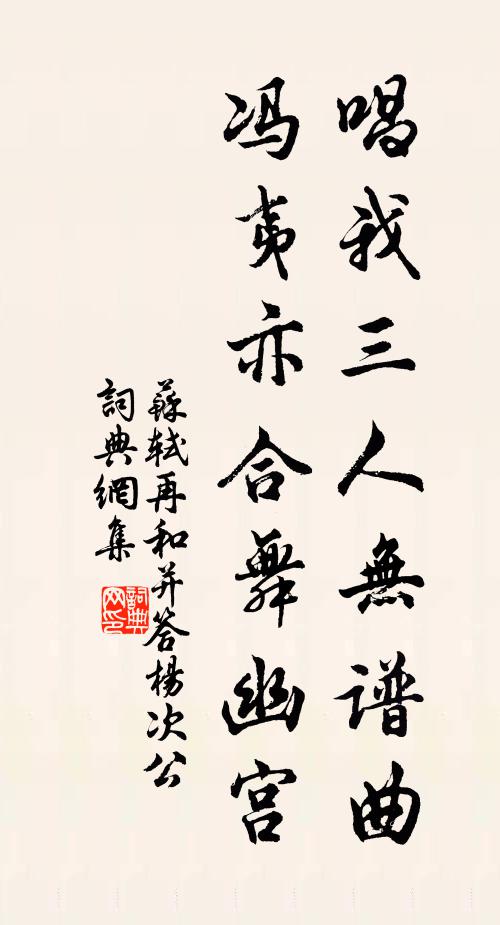 唱我三人無谱曲
冯夷亦合舞幽宫
蘇轼再和并答楊次公
詞典網集
詞典网印